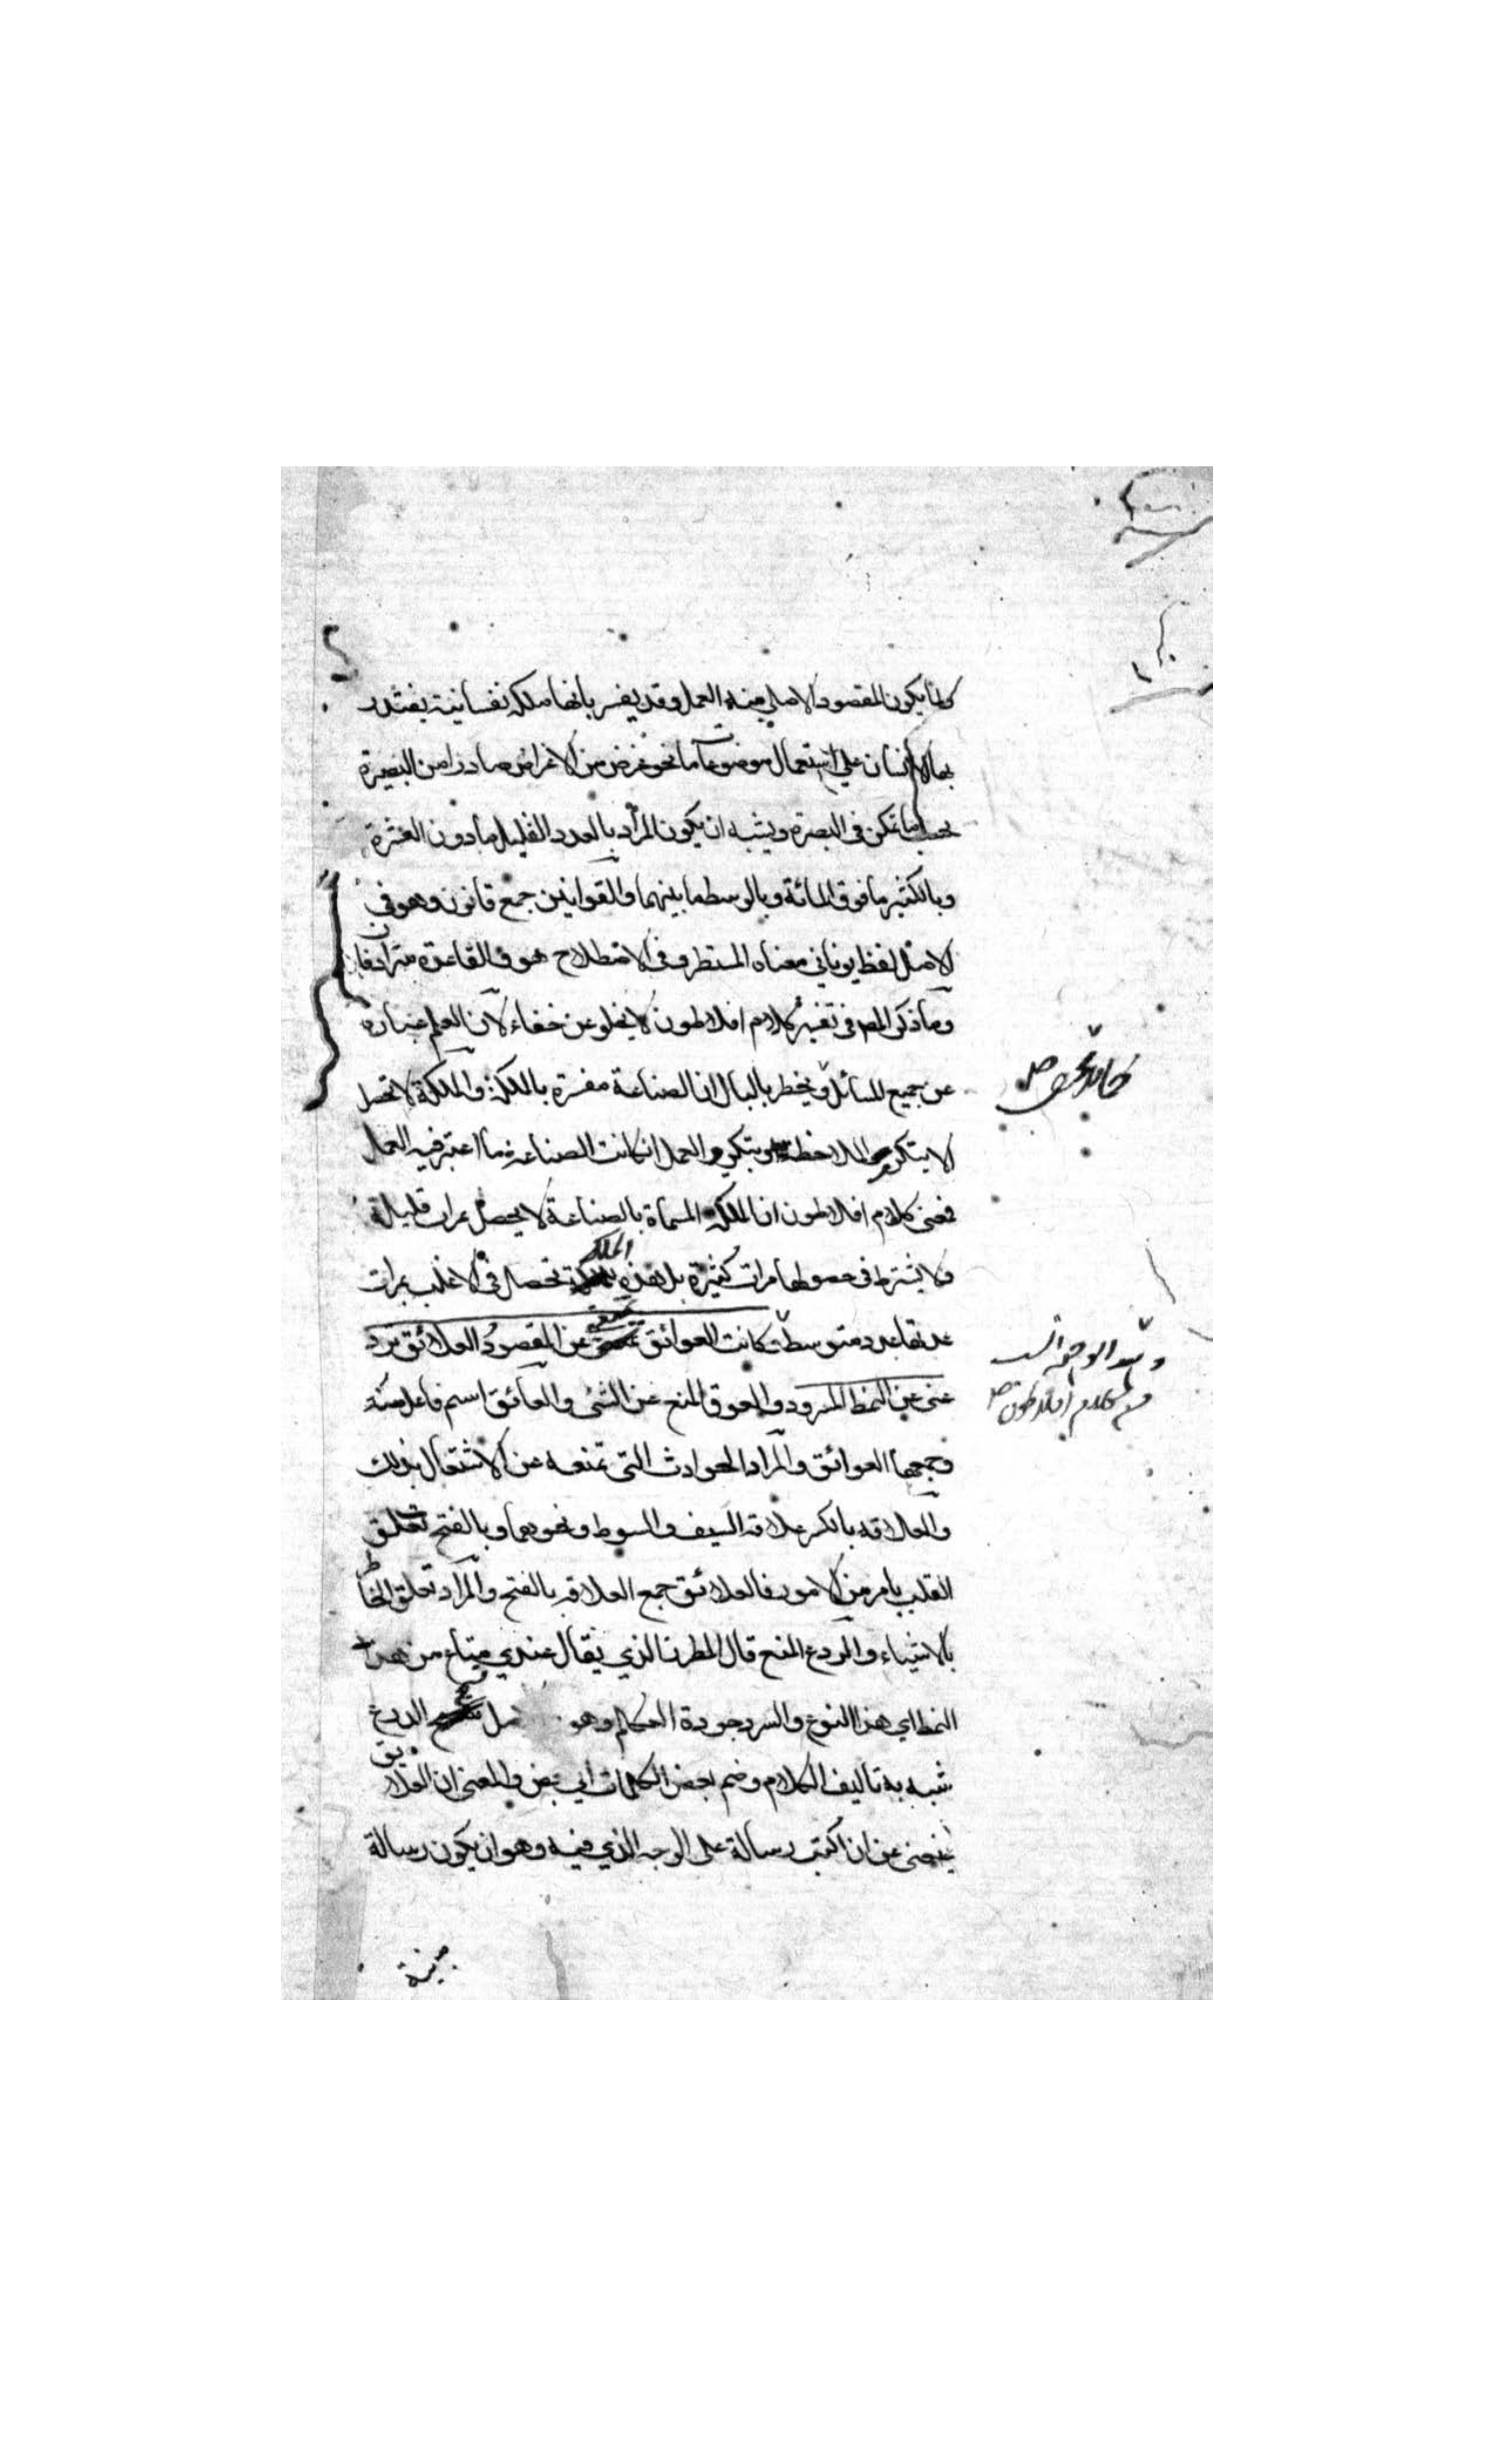 كما يكون المقصود الاصلي منه العمل وقد يفسر بانها ملكة نفسانية يقتدر
بها الانسان علي استعمال موضوعات ما نحو غرض من الاغراض صادرا من البصيرة
بحسب ما تمكن في البصيرة ويشبه ان يكون المراد بالعدد القليل ما دون العشرة
وبالكثير ما فوق المائة وبالوسط ما بينهما والقوانين جمع قانون وهو في
الاصل لفظ يوناني معناه المسطر وفي الاصطلاح هو والقاعدة مترادفان
وما ذكره المص في تفسير كلام افلاطون لا يخلو عن خفاء لان العلم عبارة
عن جميع المسائل ويخطر بالبال ان الصناعة مفسرة بالملكة والملكة لا تحصل
الا بتكرر الملاحظة وبتكرر العمل ان كانت الصناعة مما اعتبر فيه العمل
فمعنى كلام افلاطون ان الملكة المسماة بالصناعة لا يحصل بمرات قليلة
ولا يشترط في حصولها مرات كثيرة بل هذه الملكة تحصل في الاغلب بمرات
عدتها عدد متوسط كانت العوائق عن المقصود العلائق ترد
عني عن النمط المسرود والعوق المنع عن الشئ والعائق اسم فاعل منه
وجمعها العوائق والمراد الحوادث التي تمنعه عن الاشتغال بذلك
والعلاقة بالكسر علاقة السيف والسوط ونحوهما وبالفتح تعلق
القلب بامر من الامور فالعلائق جمع العلاقة بالفتح والمراد تعلق الخاطر
بالاشياء والردع المنع قال المطرزي يقال عندي متاع من هذا
النمط اي هذا النوع والسرد جودة وهو الدرع
شبه به تاليف الكلام وضم بعض الكلمات الي بعض والمعنى ان العلايق
يمنعني عن ان اكتب رسالة على الوجه الذي فيه وهو ان يكون رسالة
مبنية
كلام افلاطون صح